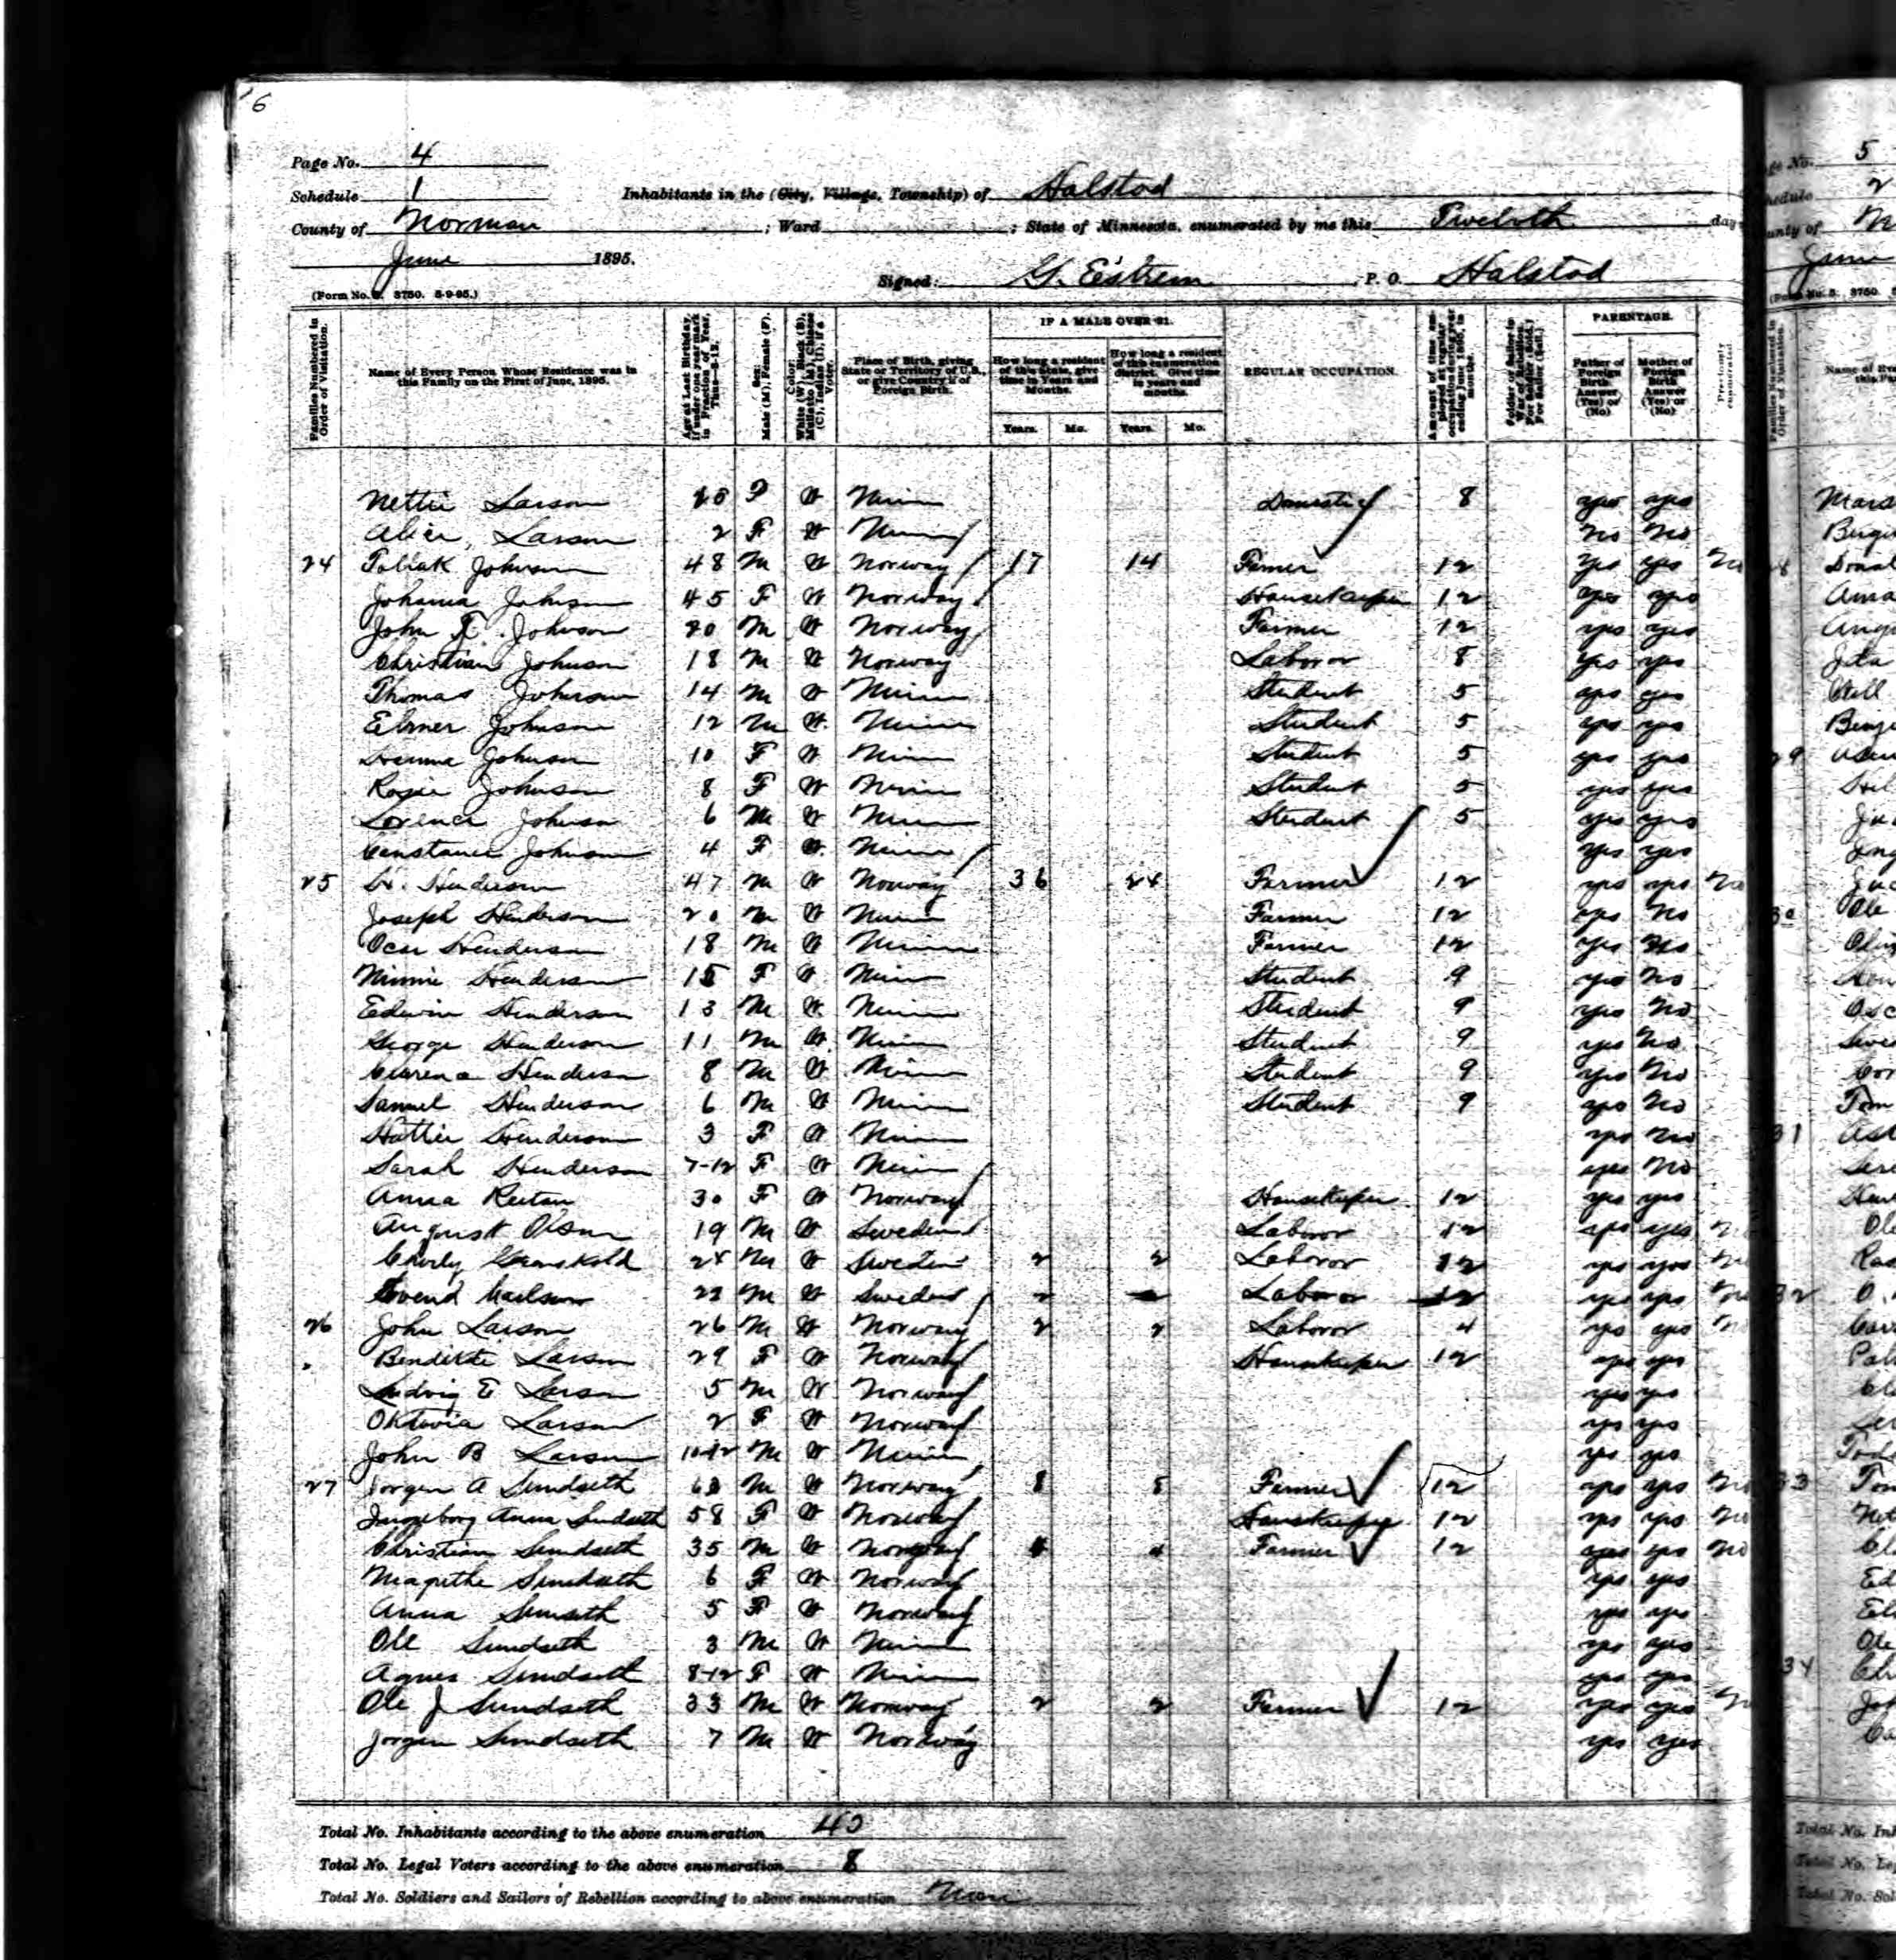 6
Page No. 4
Schedule 1 Inhabitants in the (City, Village, Township) of Halstad
County of Norman ; Ward ; State of Minnesota, enumerated by me this Twelvth day
June 1895.
Signed: G. Eistrem P. O. Halstad
(Form No. 5. 3750. 5-9-95.)
Families Numbered in Order of Visitation.
Name of Every Person Whose Residence was in this Family on the First of June, 1895.
Age at Last Birthday, if under one year mark in Fraction of Year, Thus—5-12.
Sex: Male (M), Female (F).
Color: White (W), Black (B), Mulatto (M), Chinese (C), Indian (I), if a Voter.
Place of Birth, giving State or Territory of U.S., or give Country if of Foreign Birth.
IF A MALE OVER 21.
How long a resident of this State, give time in Years and Months.
How long a resident of this enumeration district. Give time in years and months.
Years. Mo. Years. Mo.
REGULAR OCCUPATION.
PARENTAGE.
Father of Foreign Birth Answer (Yes) or (No)
Mother of Foreign Birth Answer (Yes) or (No)
Previously enumerated.
Nettie Larson F W Minn Domestic 8 yes yes
Alice, Larson 2 F W Minn No No
24 Johnson 48 M W Norway 17 14 Famer 12 Yes yes No
Johanna Johnson 45 F W Norway Housekeeper 12 yes yes
John T. Johnson 20 M W Norway Farmer 12 yes yes
Christian Johnson 18 M W Norway Laboror 8 yes yes
Thomas Johnson 14 M W Minn Student 5 yes yes
Elmer Johnson 12 M W. Minn Student 5 yes yes
Hanna Johnson 10 F W Minn Student 5 yes yes
Rosie Johnson 8 F W Minn Student 5 yes yes
Lorence Johnson 6 M W Minn Student 5 yes yes
Constance Johnson 4 F W. Minn yes yes
25 H. Henderson 47 M W Norway 36 24 Farmer 12 yes yes No
Joseph Henderson 20 M W Minn Farmer 12 yes No
Ocar Henderson 18 M W Minn Farmer 12 yes No
Minnie Henderson 15 F W Minn Student 9 yes No
Edwin Henderson 13 M W. Minn Student 9 yes No
George Henderson 11 M W. Minn Student 9 yes No
Clarence Henderson 8 M W Minn Student 9 yes No
Samuel Henderson 6 M W Minn Student 9 yes No
Hattie Henderson 3 F W Minn yes No
Sarah Henderson 7-12 F W Minn yes No
Anna Reitan 30 F W Norway Housekeeper 12 yes yes
August Olson 19 M W Sweden Laboror 12 yes yes
Charly 24 M W Sweden 2 2 Laboror 12 yes yes
Svend Carlson M W Sweden 2 Laboror 12 yes yes
26 John Larson 26 M W Norway 2 2 Laboror 4 yes yes
Bendikte Larson 29 F W Norway Housekeeper 12 yes yes
Ludvig E Larson 5 M W Norway yes yes
Oktavia Larson 2 F W Norway yes yes
John B Larson 10-12 M W Minn yes yes
27 Jorgen A Sundseth M W Norway 8 8 Farmer 12 yes yes No
Ingeborg Anna Sundseth 58 F W Norway Housekeeper 12 yes yes No
Christian Sundseth 35 M W Norway 4 4 Farmer 12 yes yes No
Magrethe Sundseth 6 F W Norway yes yes
Anna Sunseth 5 F W Norway yes yes
Ole Sundseth 3 M W Minn yes yes
Agnes Sundseth 8-12 F W Minn yes yes
Ole J Sundseth 33 M W Norway 2 2 Farmer 12 yes yes No
Jorgen Sundseth 7 M W Norway yes yes
Total No. Inhabitants according to the above enumeration 40
Total No. Legal Voters according to the above enumeration 8
Total No. Soldiers and Sailors of Rebellion according to above enumeration None